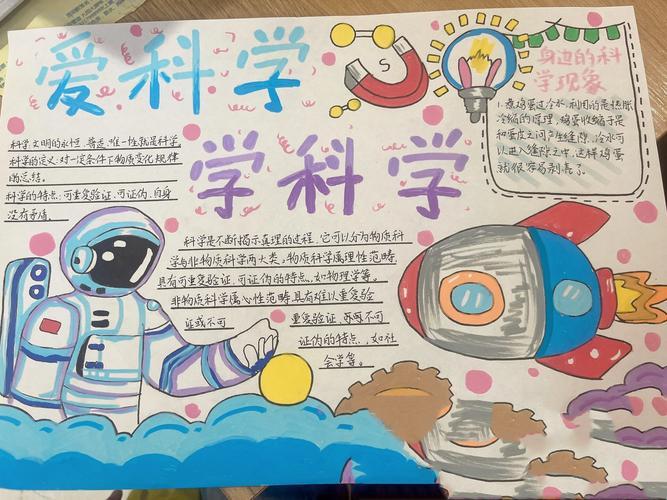 爱科学
学科学
S
身边的科
学现象
1.煮鸡蛋过冷水,利用的是热胀
冷缩的原理,鸡蛋收缩于是
和蛋皮之间产生缝隙,冷水可
以进入缝隙之中,这样鸡蛋
就很容易剥壳了。
科学文明的永恒、普适、惟一性就是科学。
科学的定义:对一定条件下物质变化规律
的总结。
科学的特点:可重复验证、可证伪、自身
没有矛盾。
科学是不断揭示真理的过程,它可以分为物质科
学与非物质科学两大类,物质科学属理性范畴,
具有可重复验证、可证伪的特点,如物理学等。
非物质科学属心性范畴,具有难以重复验
证或不可重复验证、亦不可
证伪的特点,如社
会学等。